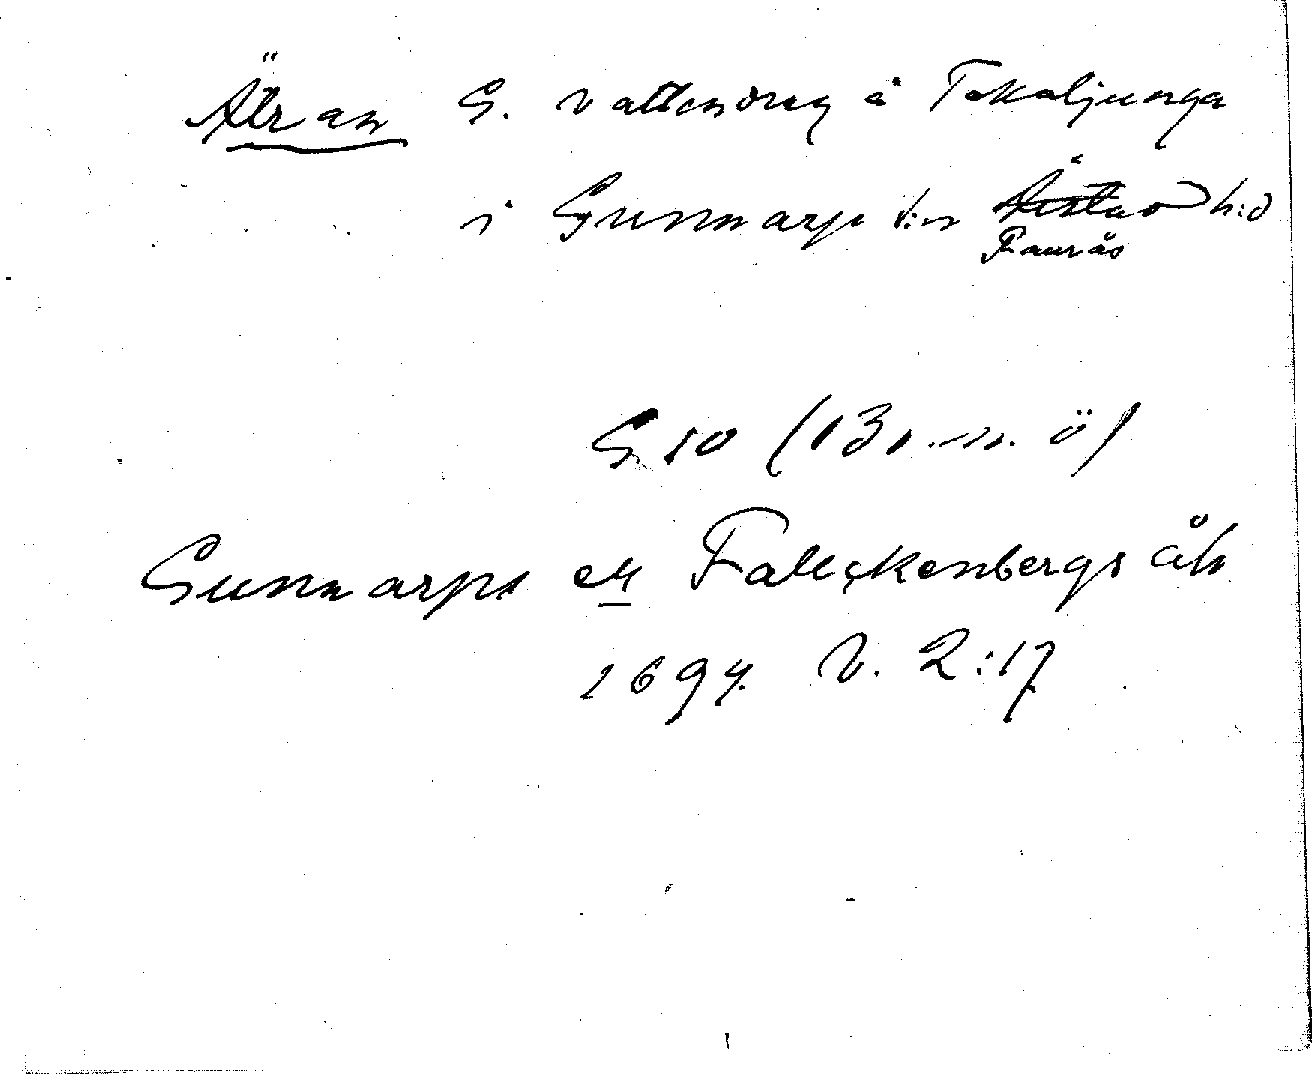 Ätran G. vattendrag å Tokaljunga
i Gunnarps s:n Årstad h:d
Faurås
G 10 (13 n. ö)
Gunnarps elf Falckenbergs åh
1694. V. 2:17